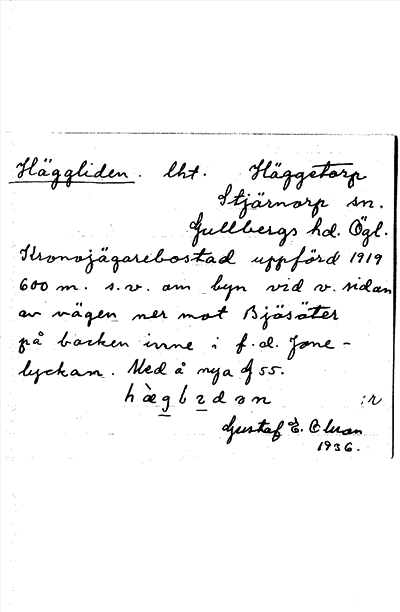 Häggliden. lht. Häggetorp
Stjärnorp sn.
Gullbergs hd. Ögl.
Kronojägarebostad uppförd 1919
600 m. s.v. om byn vid v. sidan
av vägen ner mot Bjäsäter
på backen inne i f.d. Jone-
lyckan. Med å nya G 55.
:r
Gustaf E. Olsson
1936.